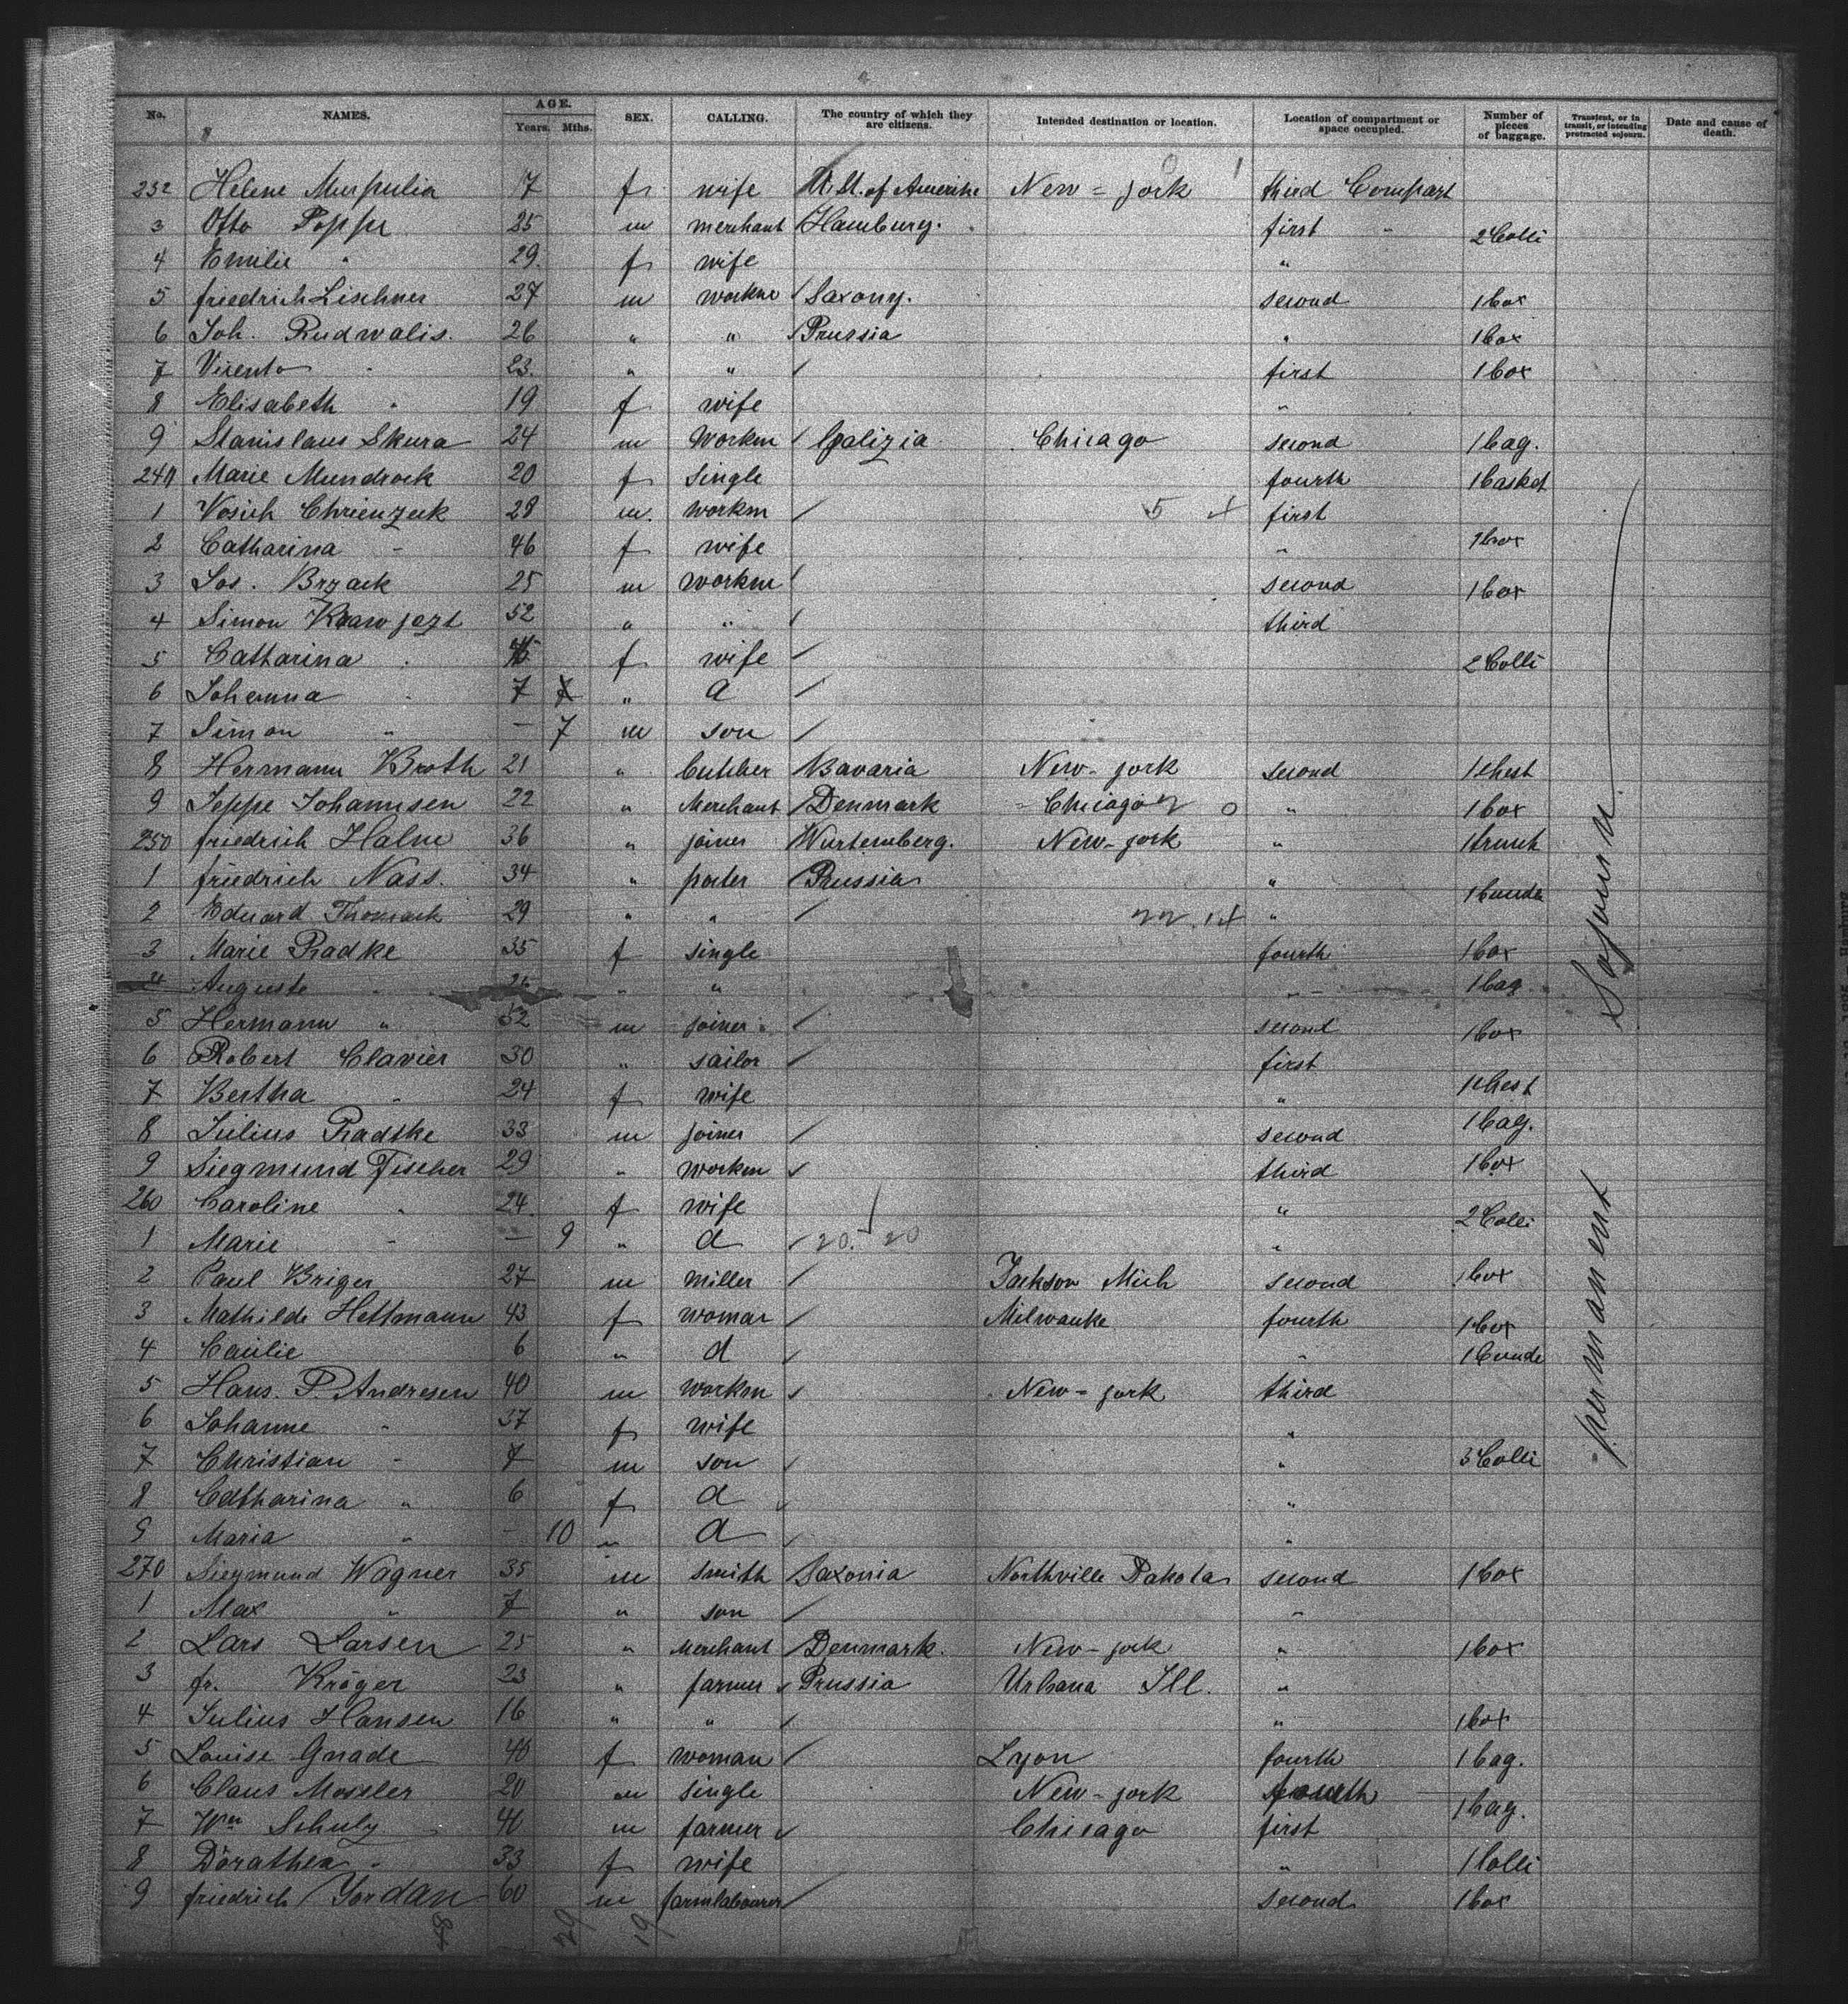 No. NAMES. AGE. Years. Mths. SEX. CALLING. The country of which they are citizens. Intended destination or location. Location of compartment or space occupied. Number of pieces of baggage. Transient, or in transit, or intending protracted sojourn. Date and cause of death.
232 Helene Murpulia 17 f. wife U. St. of Amerika New=york third Compart
3 Otto Poppe 25 m merchant Hamburg. first " 2 Colli
4 Emilie " 29. f. wife "
5 friedrich Lischner 27 m workm Saxony. second 1 box
6 Joh. Rudwalis. 26 " " Prussia " 1 box
7 Vicento " 23. " " first 1 box
8 Elisabeth " 19 f wife "
9 Stanislaus Skura 24 m workm Galizia Chicago second 1 bag.
240 Marie Mundrock 20 f single fourth 1 basket
1 Vosich Chrienzek 28 m. workm 5 first
2 Catharina " 46 f wife " 1 box
3 Jos. Brzack 25 m workm second 1 box
4 Simon Krawjezt 52 " " third
5 Catharina " 45 f wife 2 Colli
6 Johanna " 7 " d
7 Simon " - 7 m son
8 Hermann Broth 21 " butcher Bavaria New-york second 1 chest
9 Jeppe Johannsen 22 " Merchant Denmark Chicago " 1 box
250 friedrich Halm 36 " joiner Wurtemberg. New-york " 1 trunk
1 friedrich Nass. 34 " porter Prussia " 1 bunde
2 Eduard Thomack 29 " " "
3 Marie Radke 35 f single fourth 1 box
4 Auguste " 25 " " " 1 bag
5 Hermann " 32 m joiner second 1 box
6 Robert Clavier 30 " sailor first
7 Bertha " 24 f wife " 1 chest
8 Julius Radtke 33 m joiner second 1 bag.
9 Siegmund Fischer 29 " workm third 1 box
260 Caroline " 24. f wife " 2 Colli
1 Marie " - 9 " d 20. 20 "
2 Paul Briger 27 m miller Jackson Mich second 1 box
3 Mathilde Hettmann 43 f woman Milwauke fourth 1 box
4 Cäcilie 6 " d " 1 bunde
5 Hans. P. Andresen 40 m workm New=york third
6 Johanne " 37 f wife "
7 Christian " 7 m son " 3 Colli
8 Catharina " 6 f d "
9 Maria " - 10 " d "
270 Siegmund Wagner 35 m smith Saxonia Northville Dakota second 1 box
1 Max " 7 " son "
2 Lars Larsen 25 " Merchant Denmark. New-york " 1 box
3 fr. Kröger 23 " farmer Prussia Urbana Ill. "
4 Julius Hansen 16 " " " 1 box
5 Louise Gnade 40 f woman Lyon fourth 1 bag.
6 Claus Mossler 20 m single New-york fourth
7 Wm Schulz 40 m farmer Chicago first 1 bag.
8 Dorathea " 33 f wife " 1 Colli
9 friedrich Jordan 60 m farmlabourer second 1 box
permanent Sojourn
29 19